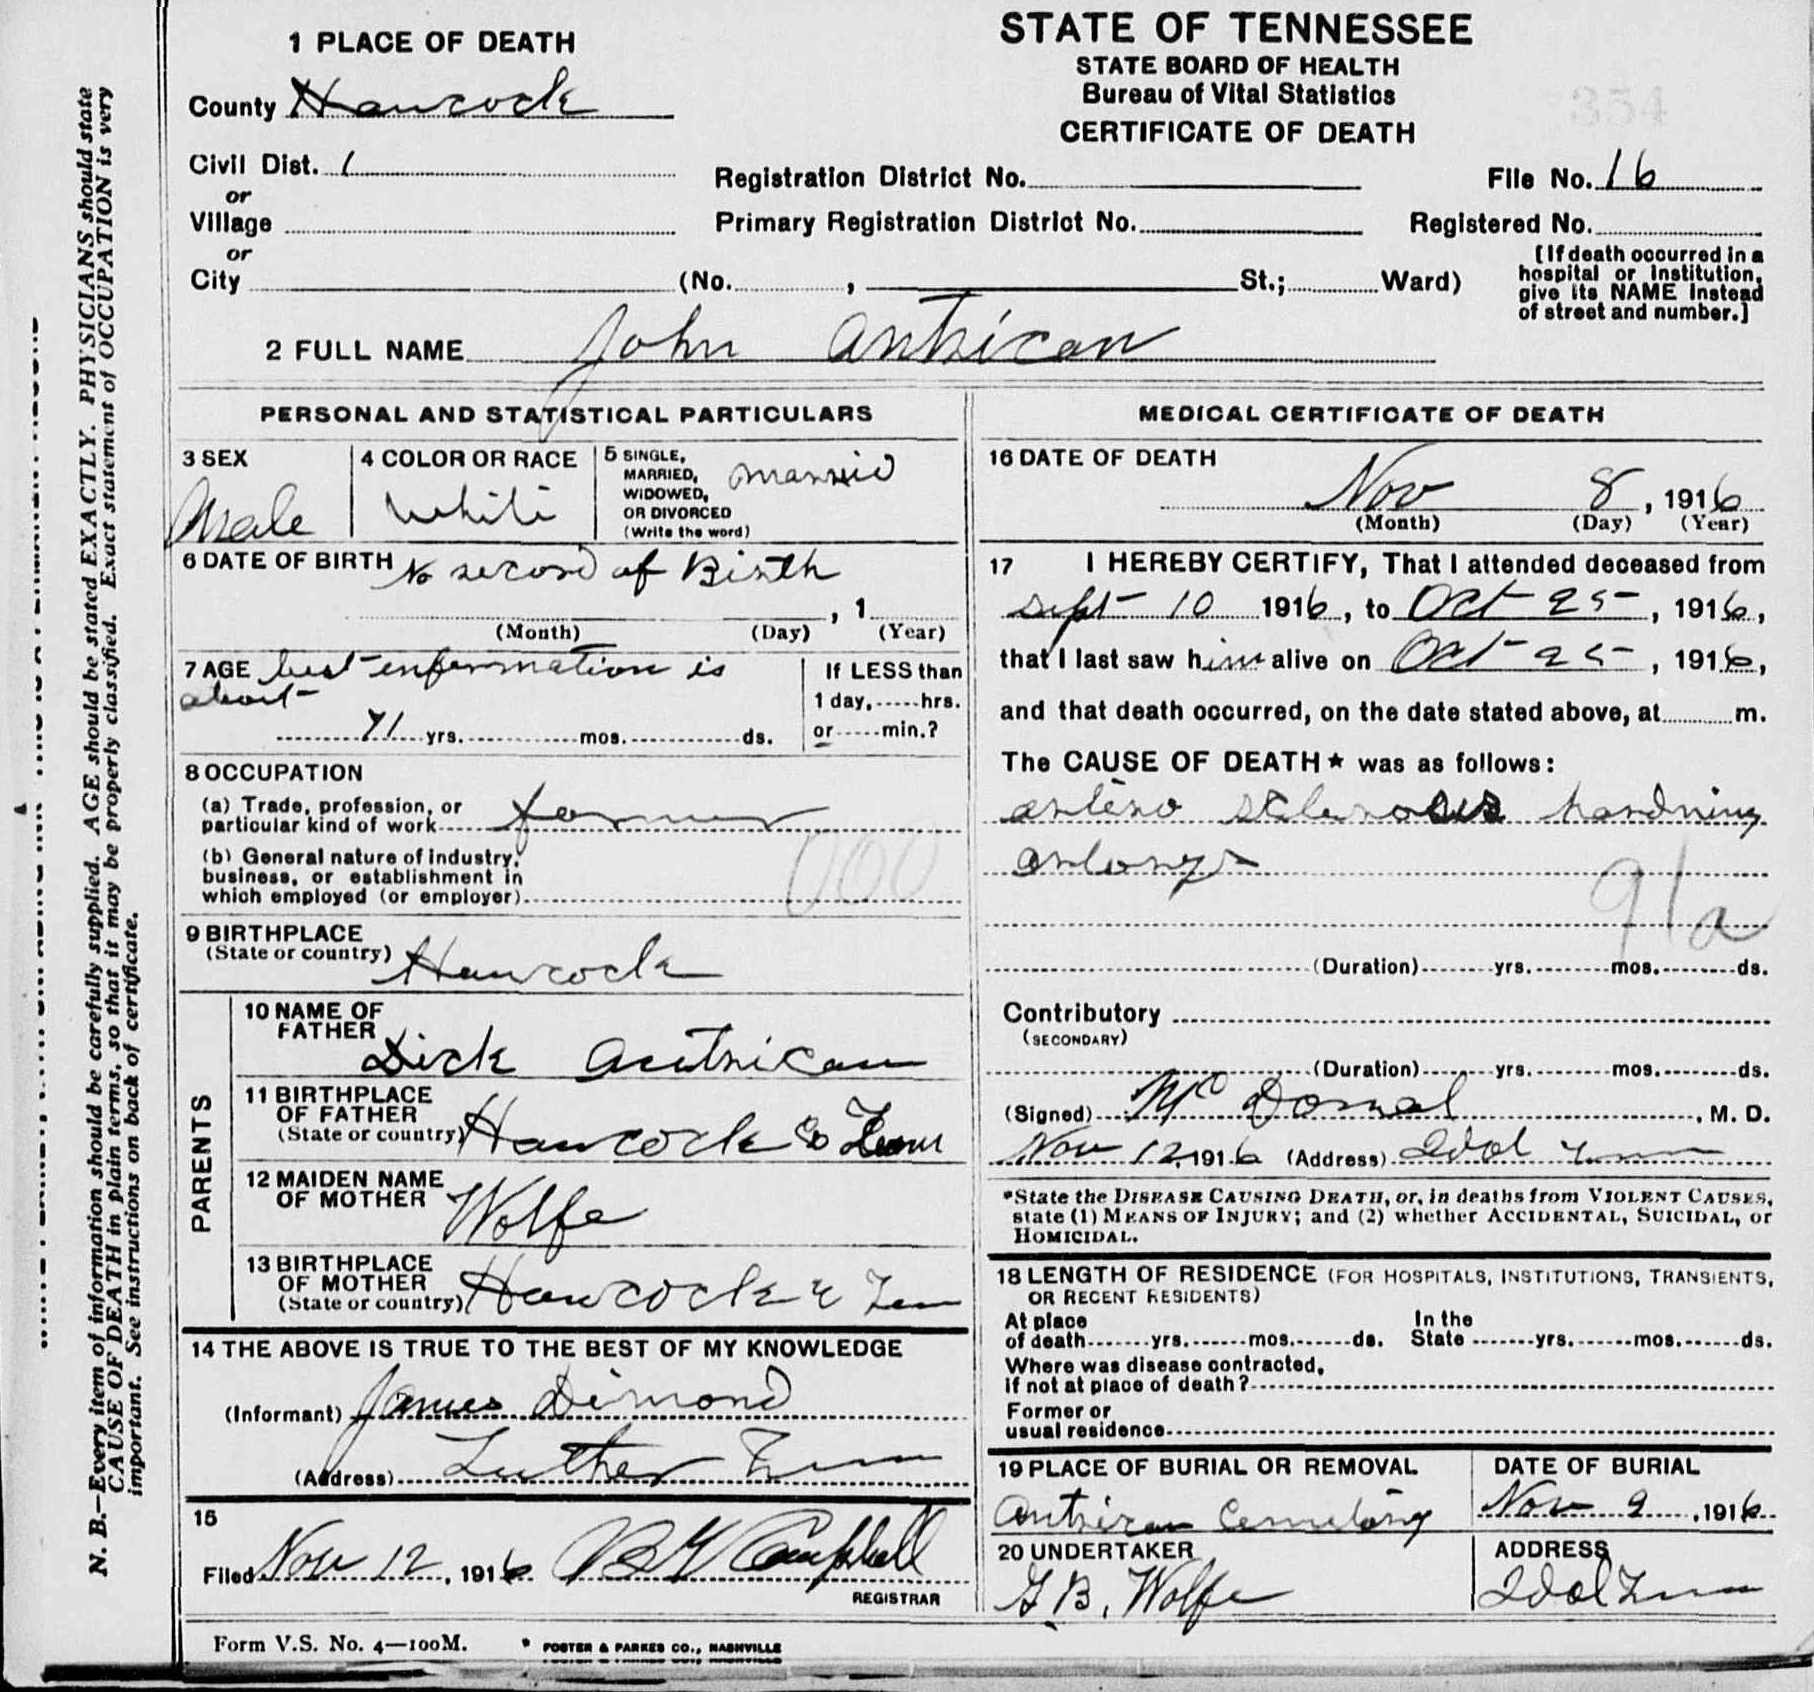 1 PLACE OF DEATH
County Hancock
Civil Dist. 1
or
Village
or
City (No. , St.; Ward)
STATE OF TENNESSEE
STATE BOARD OF HEALTH
Bureau of Vital Statistics
CERTIFICATE OF DEATH
354
Registration District No. File No. 16
Primary Registration District No. Registered No.
[If death occurred in a
hospital or institution,
give its NAME instead
of street and number.]
2 FULL NAME John Antrican
PERSONAL AND STATISTICAL PARTICULARS
3 SEX
Male
4 COLOR OR RACE
White
5 SINGLE,
MARRIED,
WIDOWED,
OR DIVORCED
(Write the word)
Married
6 DATE OF BIRTH No record of Birth
, 1
(Month) (Day) (Year)
7 AGE best information is
about
71 yrs. mos. ds.
If LESS than
1 day, hrs.
or min.?
8 OCCUPATION
(a) Trade, profession, or
particular kind of work farmer
(b) General nature of industry,
business, or establishment in
which employed (or employer)
000
9 BIRTHPLACE
(State or country) Hancock
PARENTS
10 NAME OF
FATHER Dick Antrican
11 BIRTHPLACE
OF FATHER
(State or country) Hancock Co Tenn
12 MAIDEN NAME
OF MOTHER Wolfe
13 BIRTHPLACE
OF MOTHER
(State or country) Hancock Tenn
14 THE ABOVE IS TRUE TO THE BEST OF MY KNOWLEDGE
(Informant) James Dimond
(Address) Luther Tenn
15
Filed Nov 12, 1916 Campbell
REGISTRAR
MEDICAL CERTIFICATE OF DEATH
16 DATE OF DEATH
Nov 8, 1916
(Month) (Day) (Year)
17 I HEREBY CERTIFY, That I attended deceased from
Sept 10 1916, to Oct 25, 1916,
that I last saw him alive on Oct 25, 1916,
and that death occurred, on the date stated above, at m.
The CAUSE OF DEATH* was as follows:
artero sclerosis hardning
91a
(Duration) yrs. mos. ds.
Contributory
(SECONDARY)
(Duration) yrs. mos. ds.
(Signed) McDonal, M. D.
Nov 12, 1916 (Address) Idol Tenn
*State the DISEASE CAUSING DEATH, or, in deaths from VIOLENT CAUSES,
state (1) MEANS OF INJURY; and (2) whether ACCIDENTAL, SUICIDAL, or
HOMICIDAL.
18 LENGTH OF RESIDENCE (FOR HOSPITALS, INSTITUTIONS, TRANSIENTS,
OR RECENT RESIDENTS)
At place In the
of death yrs. mos. ds. State yrs. mos. ds.
Where was disease contracted,
if not at place of death?
Former or
usual residence
19 PLACE OF BURIAL OR REMOVAL
Antrican Cemetary
DATE OF BURIAL
Nov 9, 1916
20 UNDERTAKER
G. B. Wolfe
ADDRESS
Idol Tenn
Form V.S. No. 4—100M.
FOSTER & PARKES CO., NASHVILLE
N. B.—Every item of information should be carefully supplied. AGE should be stated EXACTLY. PHYSICIANS should state
CAUSE OF DEATH in plain terms, so that it may be properly classified. Exact statement of OCCUPATION is very
important. See instructions on back of certificate.